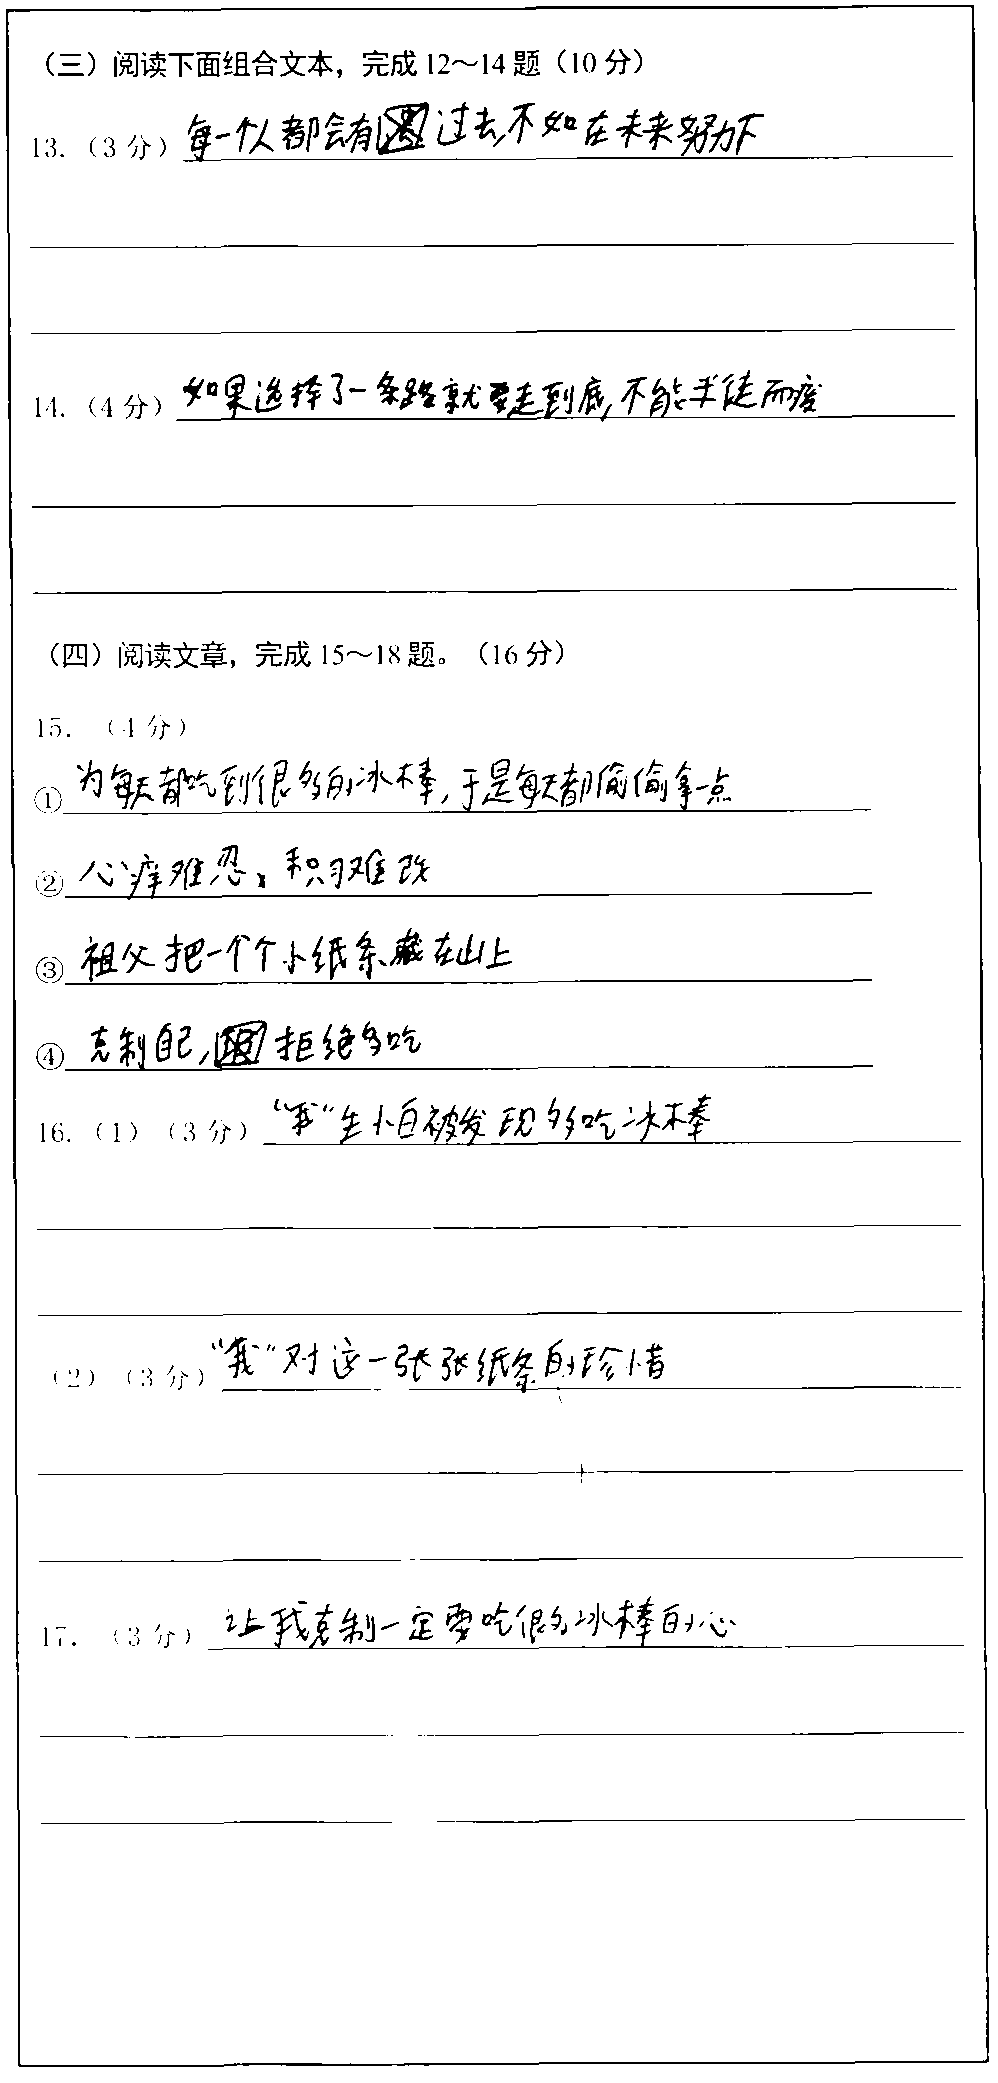 （三）阅读下面组合文本，完成12～14题（10分）
13.（3分）每一个人都会有过去,不如在未来努力下
14.（4分）如果选择了一条路就要走到底,不能半徒而废
（四）阅读文章，完成15～18题。（16分）
15.（4分）
①为每天都吃到很多的冰棒,于是每天都偷偷拿一点
②心痒难忍,积习难改
③祖父把一个个小纸条藏在山上
④克制自己,拒绝多吃
16.（1）（3分）“我”生怕被发现多吃冰棒
（2）（3分）“我”对这一张张纸条的珍惜
17.（3分）让我克制一定要吃很多冰棒的心